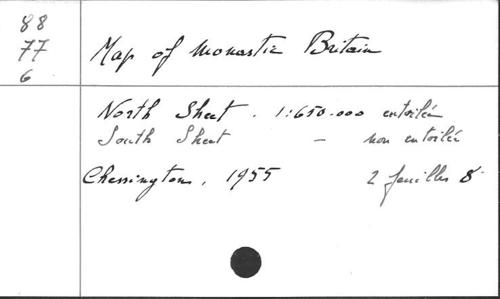 88
77
6
Map of Monastic Britain
North Sheet . 1:650.000 entoilée
South Sheet – non entoilée
Chessington, 1955 2 feuilles 8°